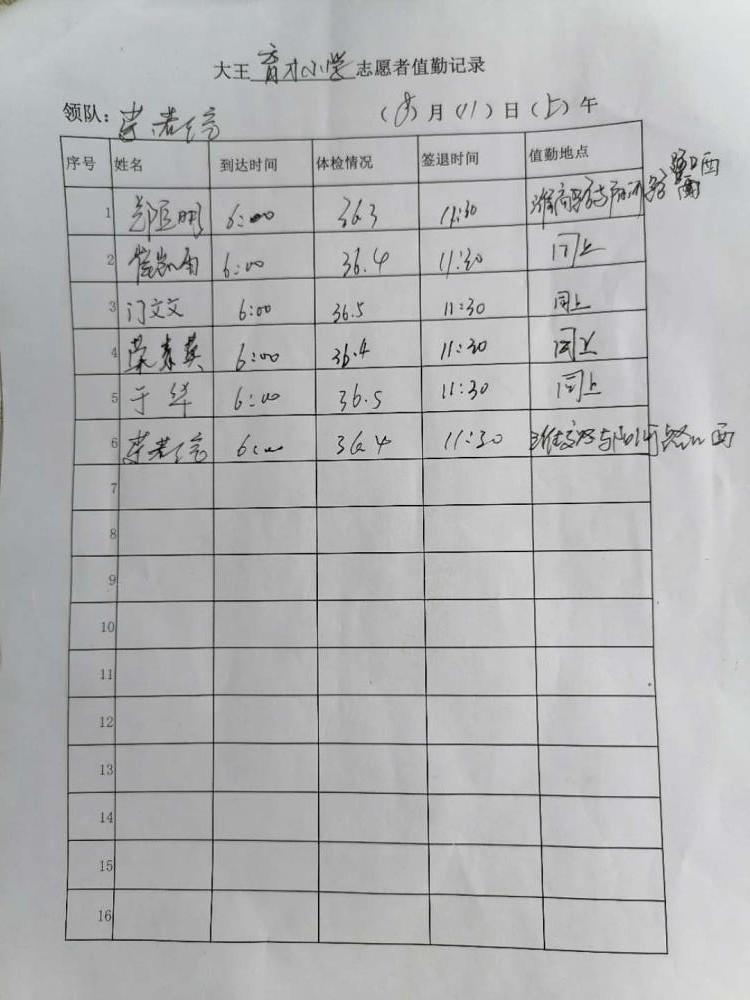 大王 育才小学 志愿者值勤记录
领队： ( ) 月 (11) 日 (上) 午
序号 姓名 到达时间 体检情况 签退时间 值勤地点
1 6:00 36.3 11:30 路口西
2 6:00 36.4 11:30 同上
3 门文文 6:00 36.5 11:30 同上
4 荣素英 6:00 36.4 11:30 同上
5 于华 6:00 36.5 11:30 同上
6 6:00 36.4 11:30 西
7
8
9
10
11
12
13
14
15
16